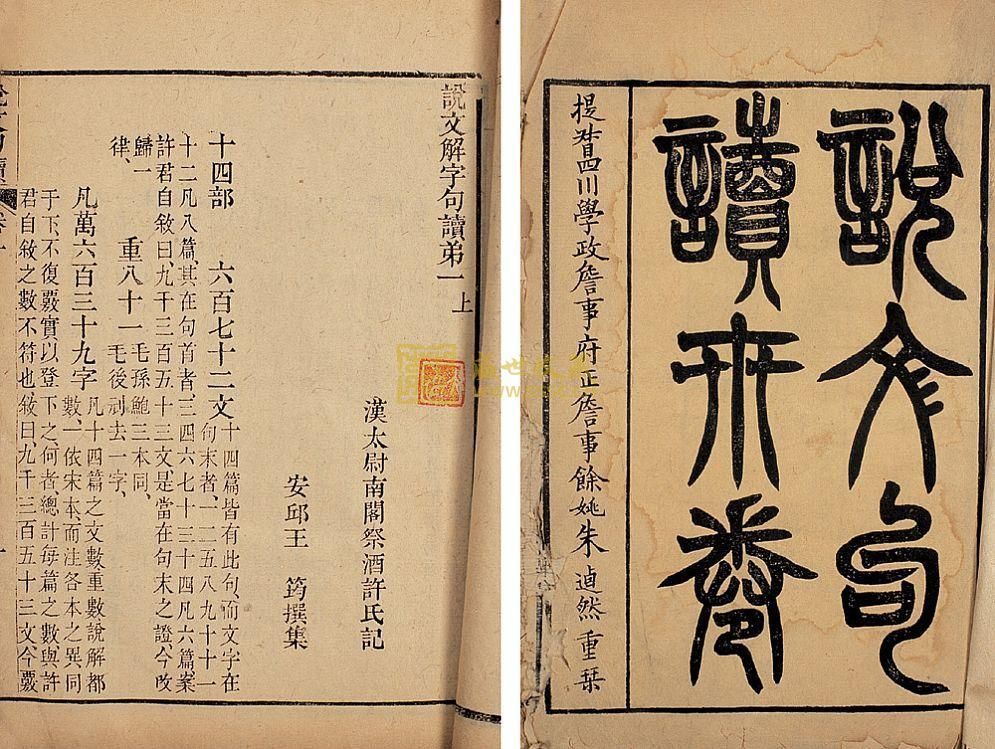 説文句
讀卅卷
提督四川學政詹事府正詹事餘姚朱逌然重栞
說文解字句讀弟一上
漢太尉南閣祭酒許氏記
安邱王　筠撰集
十四部　六百七十二文
十四篇皆有此句、而文字在
句末者、一二五八九十十一
十二凡八篇、其在句首者、三四六七十三十四凡六篇、案
許君自敘曰、九千三百五十三文、是當在句末之證、今改
歸一
律、
重八十一
毛孫鮑三本同、
毛後剜去一字、
凡萬六百三十九字
凡十四篇之文數重數說解都
數、一依宋本、而注各本之異同
于下、不復覈實、以登下之、何者、總計每篇之數、與許
君自敘之數不符也、敘曰、九千三百五十三文、今覈